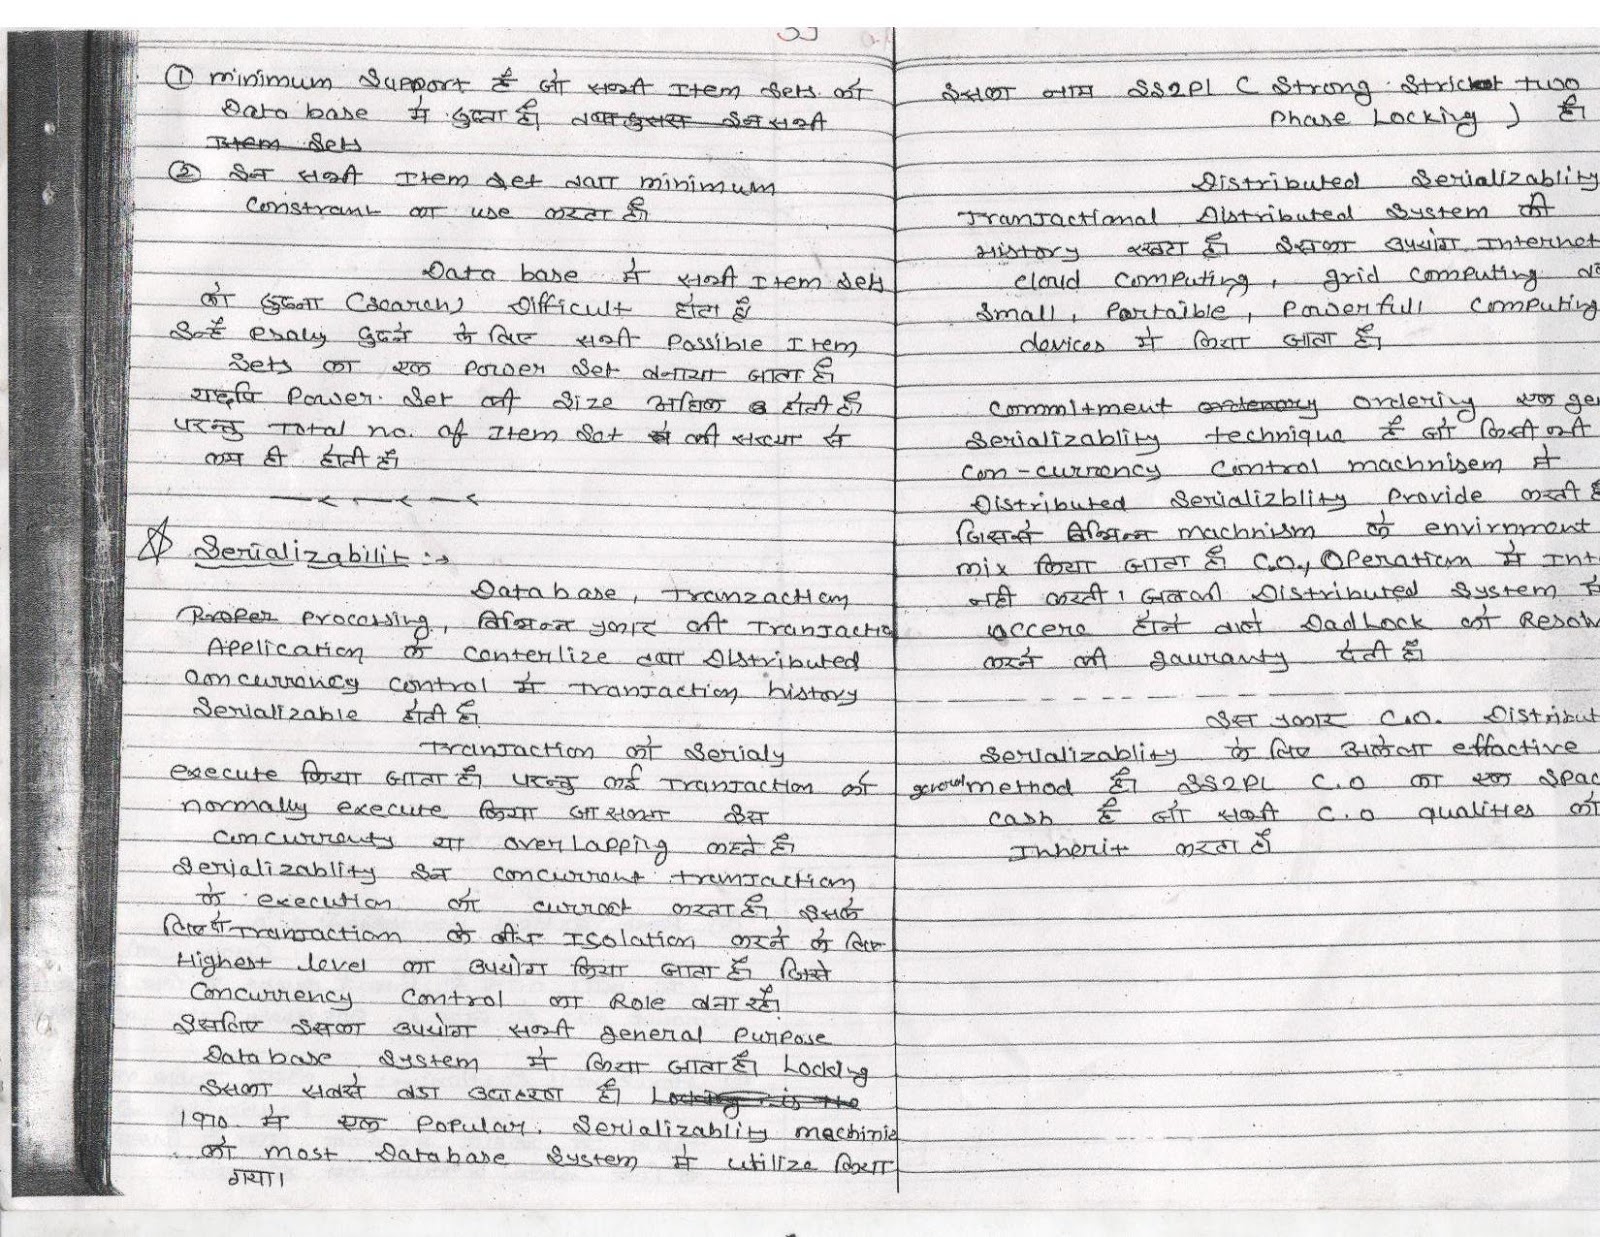 ① minimum Support है जो सभी Item Sets को
Data base में ढुढता है।
Item Sets
② इन सभी Item Set तथा minimum
Constrant का use करता है।
Data base में सभी Item Sets
को ढुढना (Search) Difficult होता है
इन्हे esaly ढुढने के लिए सभी Possible Item
Sets का एक Power Set बनाया जाता है।
यद्दपि Power Set की Size अधिक होती है।
परन्तु Total no. of Item Set की संख्या से
कम ही होती है।
Serializabilit :→
Database, Tranzaction
Proper Processing, विभिन्न प्रकार की Transactio
Application के Conterlize तथा Distributed
Concurrency Control में Transaction history
Serializable होती है।
Transaction को Serialy
execute किया जाता है। परन्तु कई Transaction को
normally execute किया जा सकता इस
Concurrenty या overlapping कहते है।
Serializablity इन concurrant transaction
के execution को currect करता है। इसके
लिए Transaction के बीच Isolation करने के लिए
Highest level का उपयोग किया जाता है। जिसे
Concurrency Control का Role बना रहे।
इसलिए इसका उपयोग सभी general Purpose
Database System में किया जाता है। Locking
इसका सबसे बडा उदाहरण है। Locking is the
1970 में एक Popular. Serializablity machinie
को most Database System में utilize किया
गया।
इसका नाम SS2Pl ( Strong Strickt two
Phase Locking ) है।
Distributed Serializablity
Transactional Distributed System की
History रखता है। इसका उपयोग Internet
cloud Computing, grid Computing
Small, Partaible, Powerfull Computing
devices में किया जाता है।
Commitment ordering एक ge
Serializablity technique है जो किसी भी
Con-currency Control machnisem में
Distributed Serializblity Provide करती है
जिसमें विभिन्न machnism के envirnment
mix किया जाता है C.O., Operation में Int
नही करती। जबकी Distributed System में
accere होने वाले DadLock को Resolv
करने की gauranty देती है।
इस प्रकार C.O. Distribut
Serializablity के लिए अकेला effactive
general method है। SS2PL C.O का एक Spac
Cash है जो सभी C.O qualities को
Inherit करता है